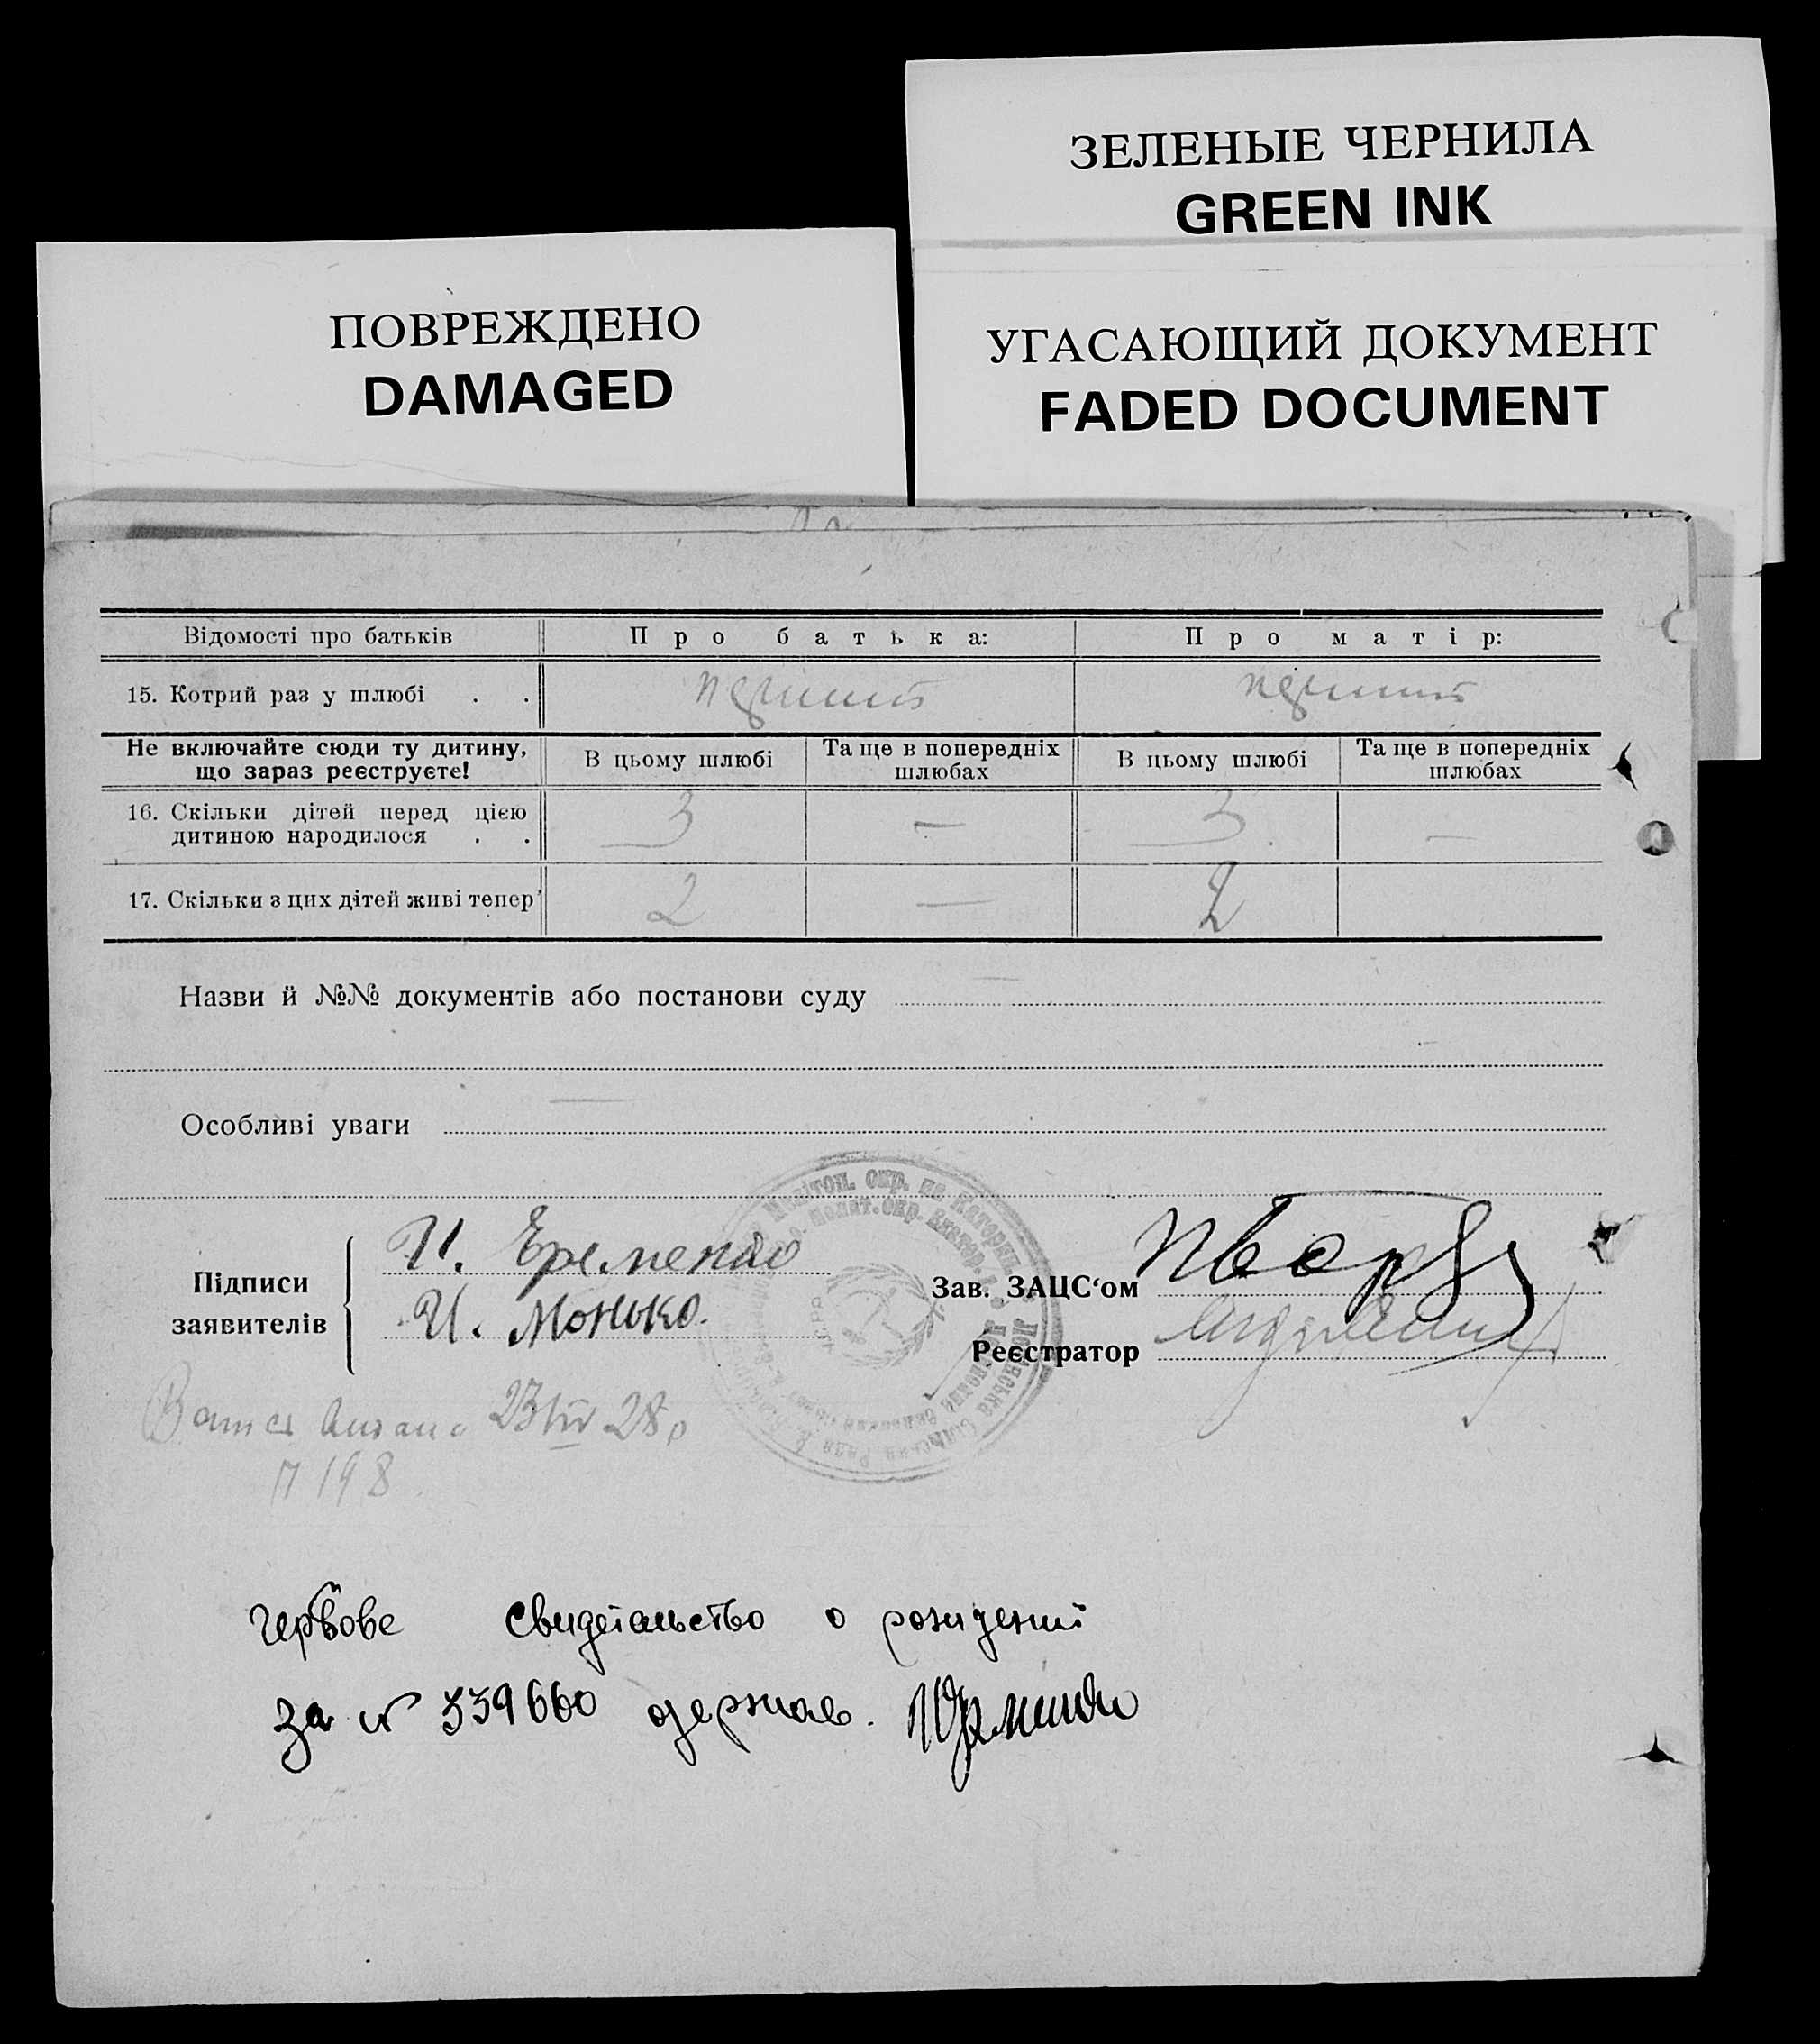 ЗЕЛЕНЫЕ ЧЕРНИЛА
GREEN INK
ПОВРЕЖДЕНО
DAMAGED
УГАСАЮЩИЙ ДОКУМЕНТ
FADED DOCUMENT
Відомості про батьків Про батька: Про матір:
15. Котрий раз у шлюбі . .
Не включайте сюди ту дитину, що зараз реєструєте!
В цьому шлюбі
Та ще в попередніх шлюбах
В цьому шлюбі
Та ще в попередніх шлюбах
16. Скільки дітей перед цією
дитиною народилося . . 3 — 3 —
17. Скільки з цих дітей живі тепер 2 — 2
Назви й №№ документів або постанови суду —
Особливі уваги —
Підписи
заявителів
И. Еременко
И. Монько.
Зав. ЗАЦС‘ом
Реєстратор
23 28
198
свидетельство о рождении
за № 339660